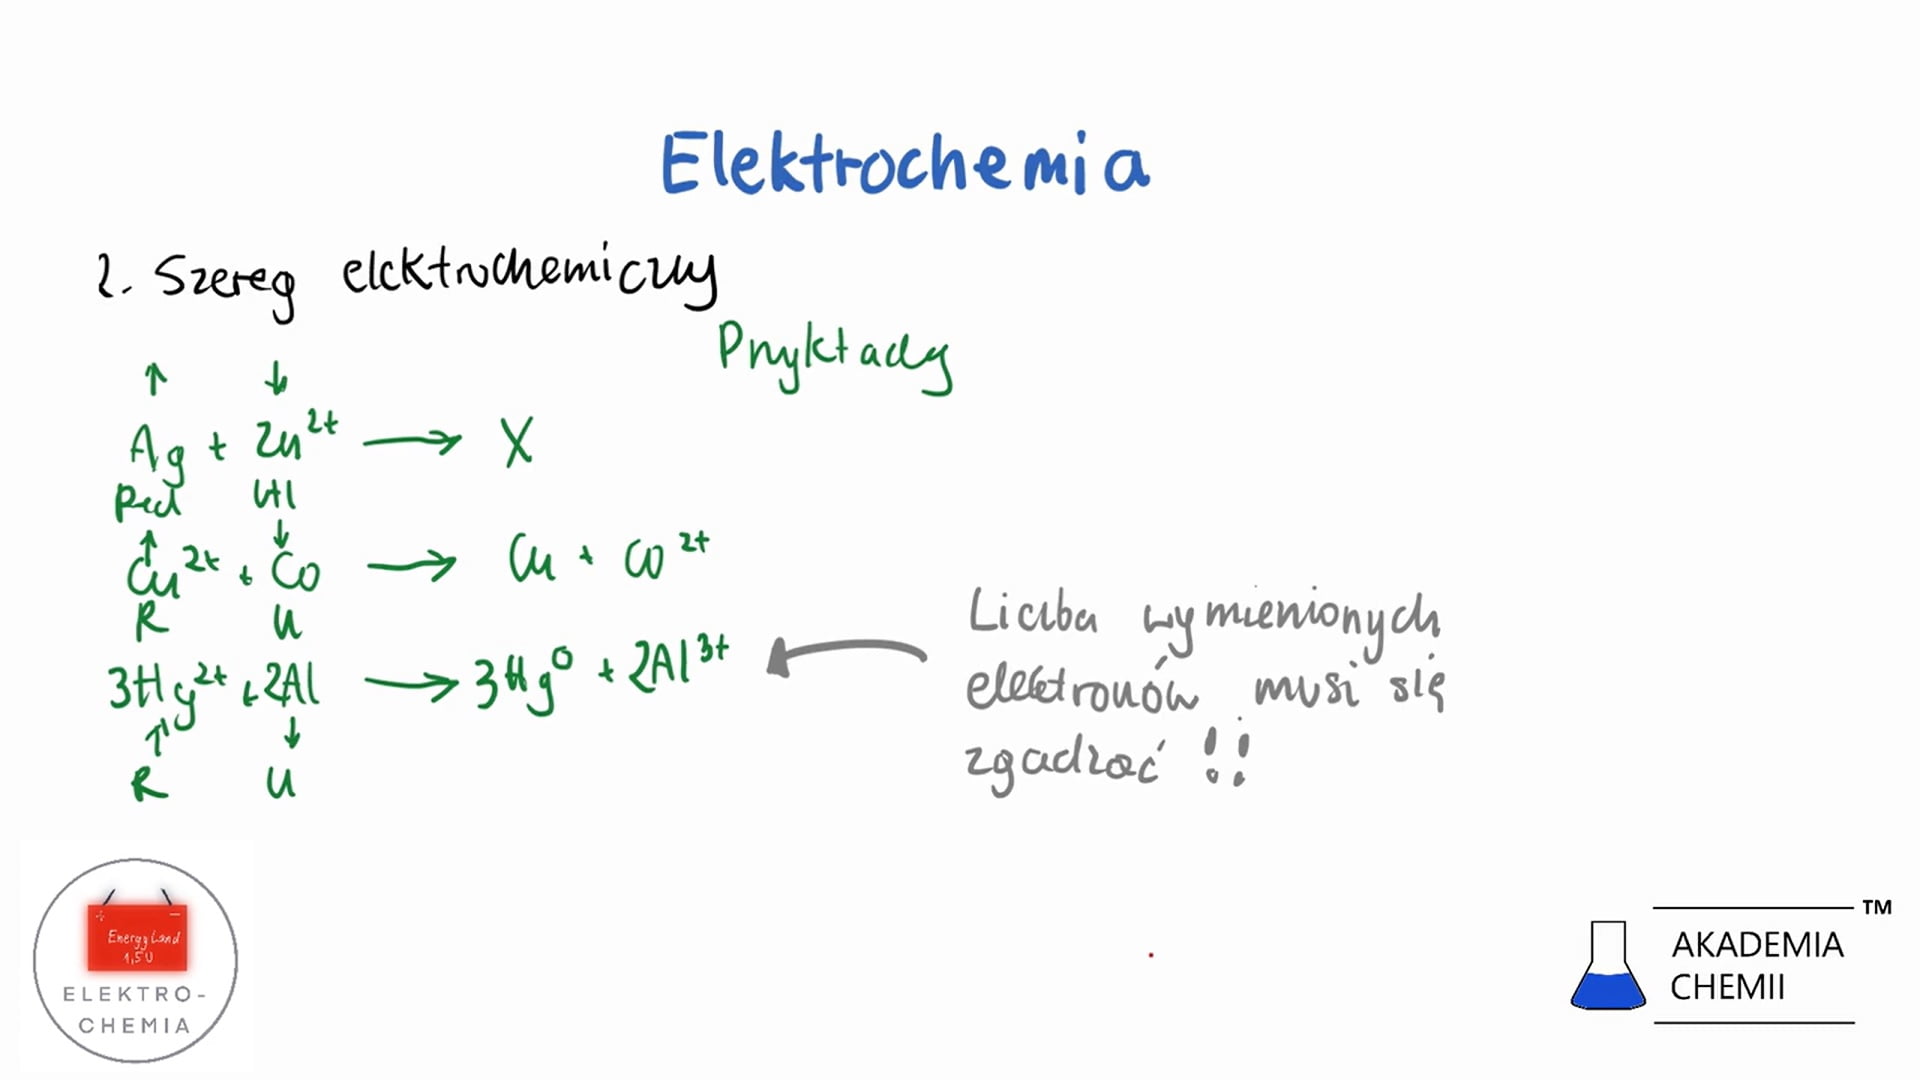 Elektrochemia
2. Szereg elektrochemiczny
Przykłady
↑ ↓
Ag + Zn²⁺ → X
Red Utl
↑ ↓
Cu²⁺ + Co → Cu + Co²⁺
R U
3Hg²⁺ + 2Al → 3Hg⁰ + 2Al³⁺
↑ ↓
R U
Liczba wymienionych
elektronów musi się
zgadzać !!
+ −
EnergyLand
1,5U
ELEKTRO-
CHEMIA
AKADEMIA TM
CHEMII